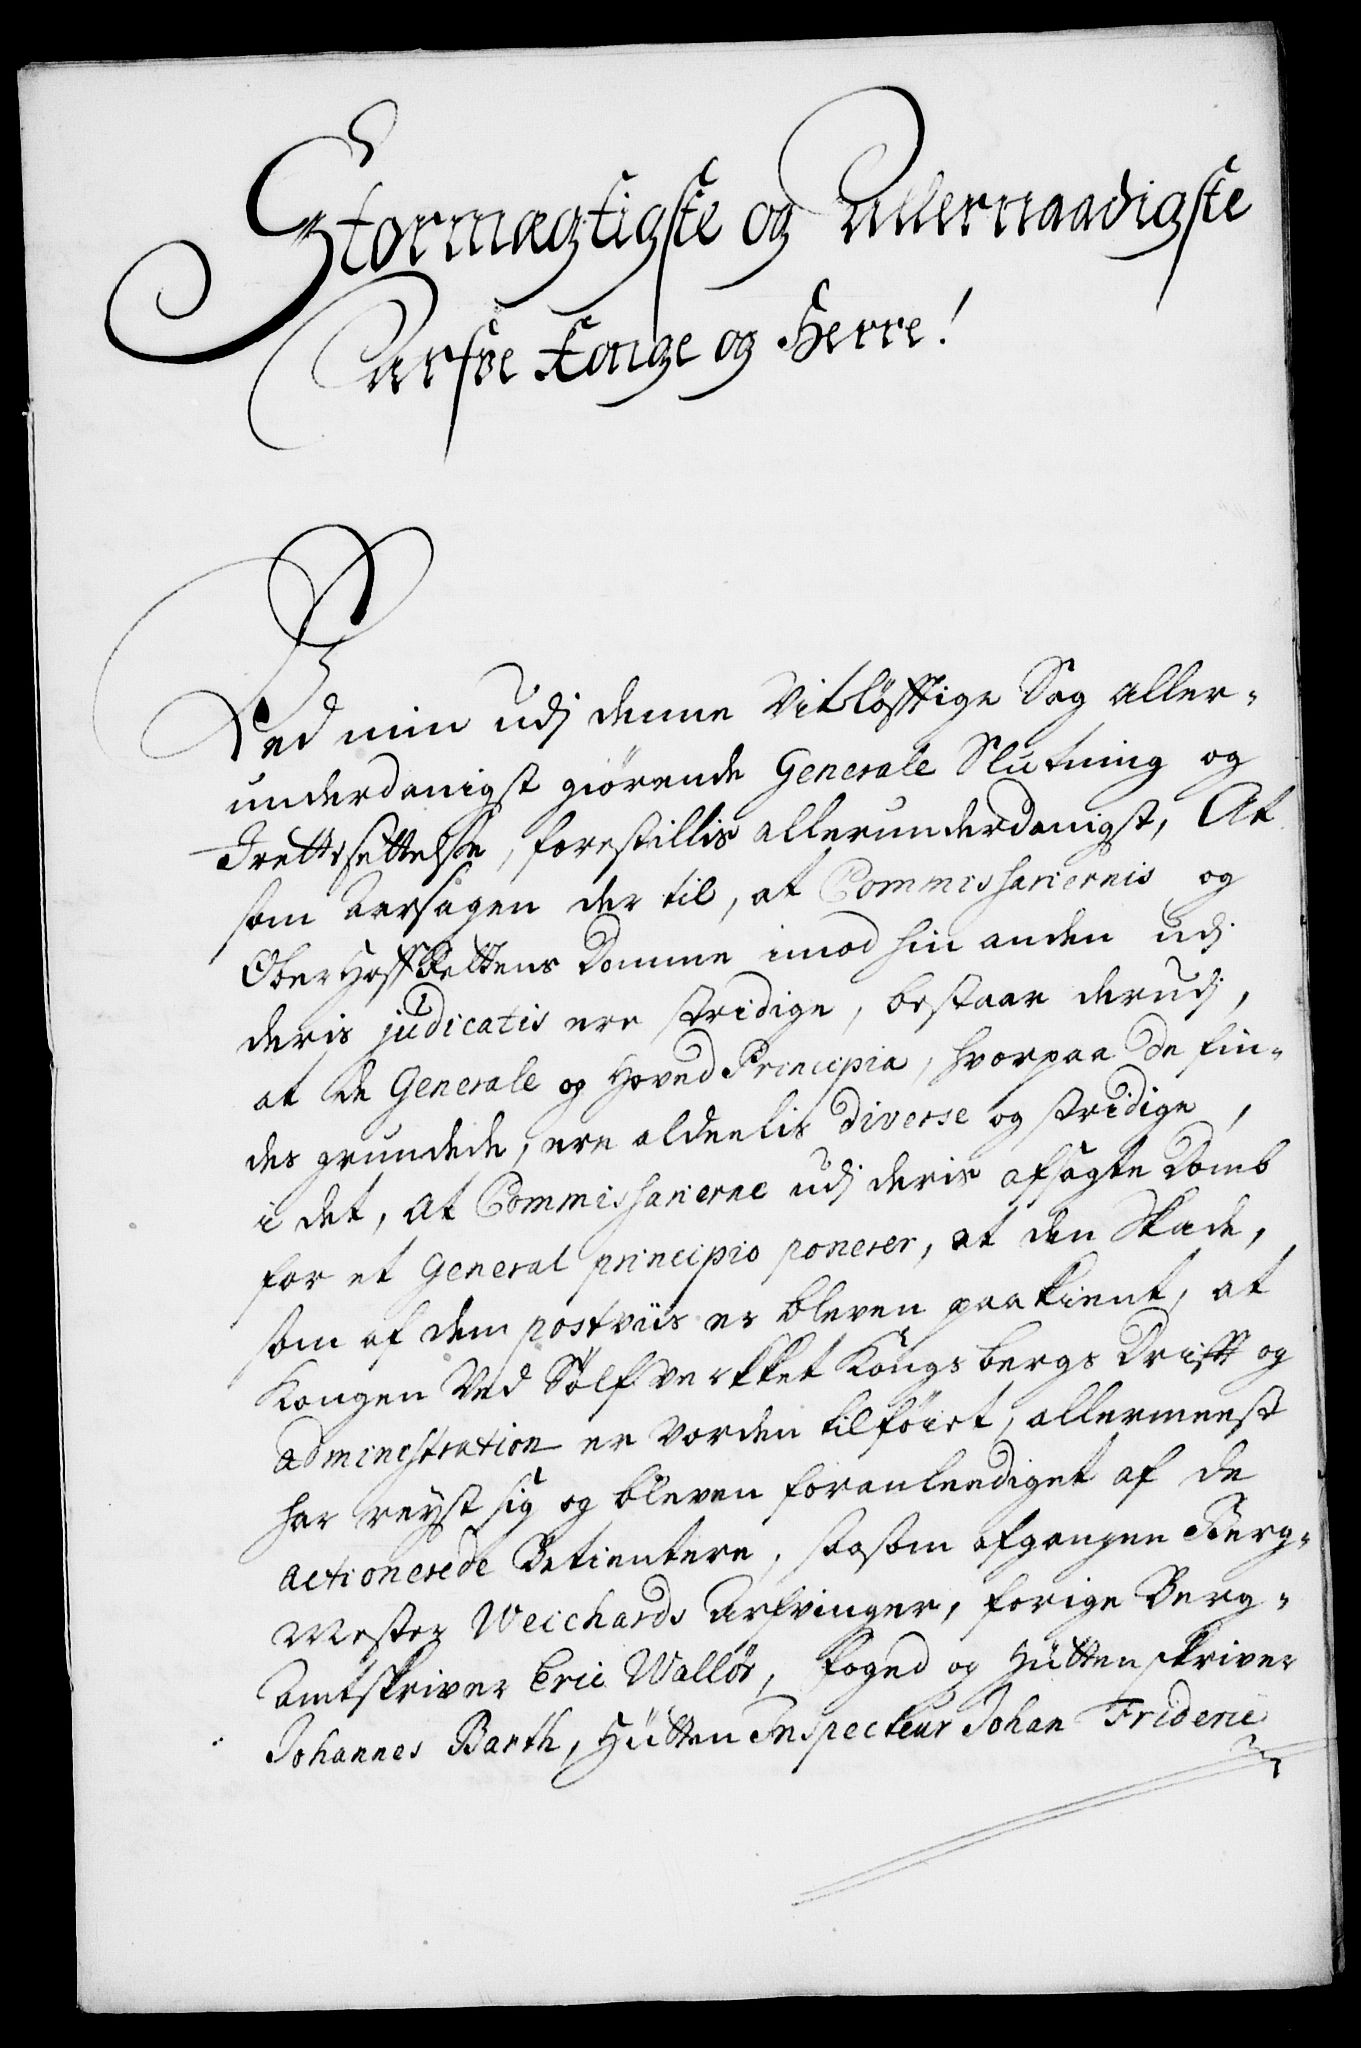 Stormægtigste og Allernaadigste
Arfve Konge og Herre!
Ved min udj denne Vitløfftige Sag aller-
underdanigst giørende Generale Slutning og
Irettesettelse, forestillis allerunderdanigst, At
som Aarsagen der til, at Commissariernis og
OberHoffRettens Domme imod hin anden udj
deris judicatis ere stridige, bestaar derudj,
at de Generale og Hoved Principia, hvorpaa de fin-
des grundede, ere aldeelis diverse og stridige,
i det, at Commissarierne udj deris afsagte Domb
for et General principio ponerer, at den Skade,
som af dem postviis er bleven paakient, at
Kongen Ved Sølfverkket Kongsbergs Drifft og
administration er vorden tilføiet, allermeest
har reyst sig og bleven foranleediget af de
actionerede Betientere, saasom afgangne Berg-
Mester Weichards Arfvinger, forige Berg-
Amtskriver Eric Walløe, foged og Hüttenskriver
Johannes Barth, Hütten Inspecteur Johan Frideric